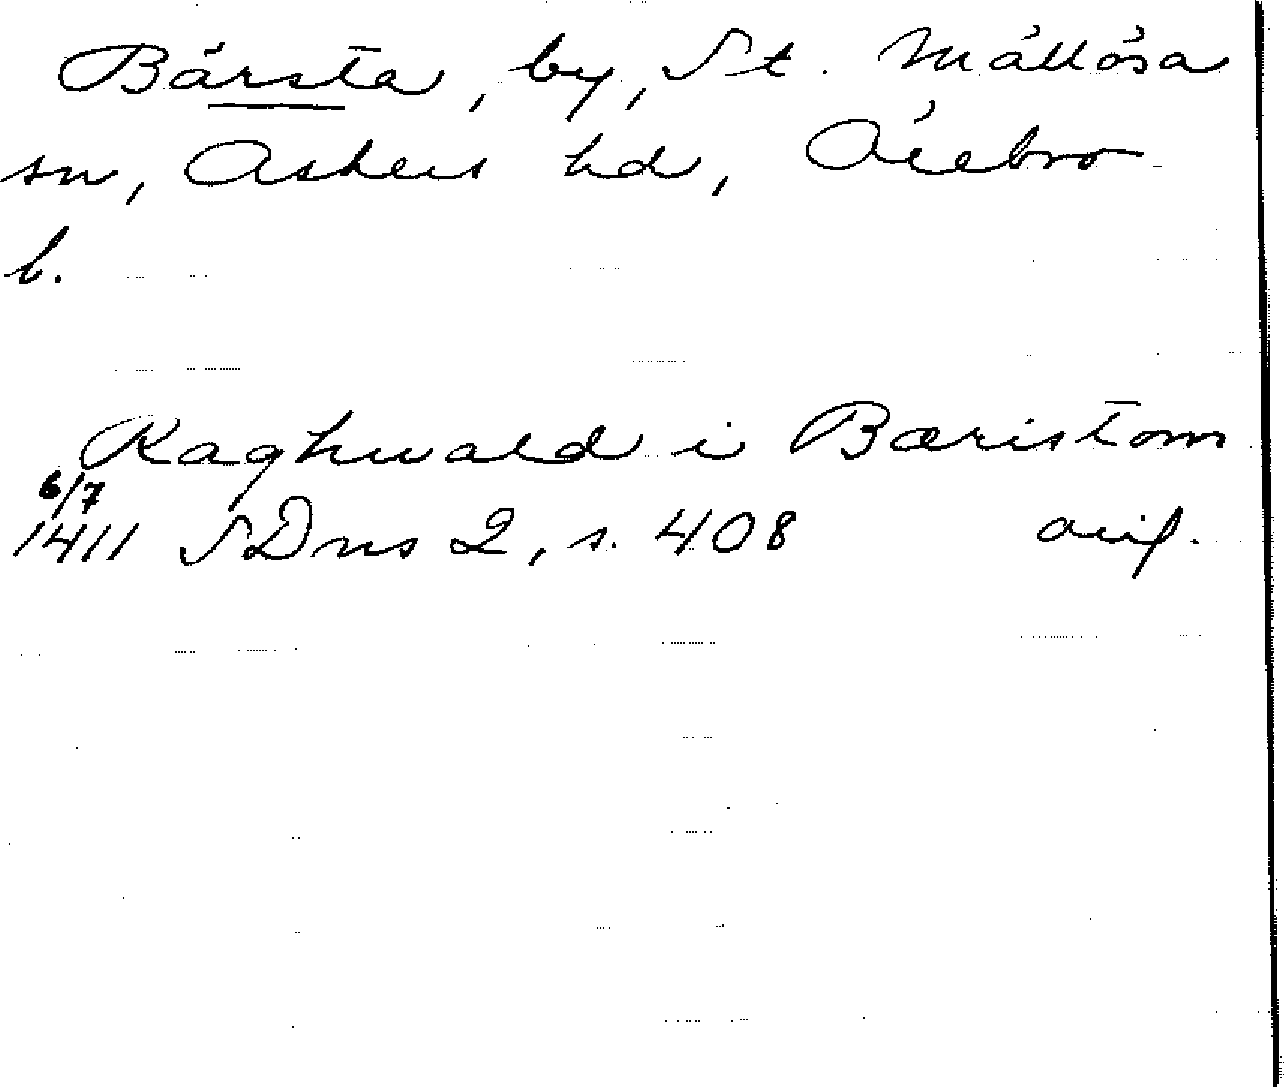 Bärsta, by, St. Mällösa
sn, Askers hd, Örebro
l.
Raghwald i Bæristom
6/7
1411 SDns 2, s. 408 avs.